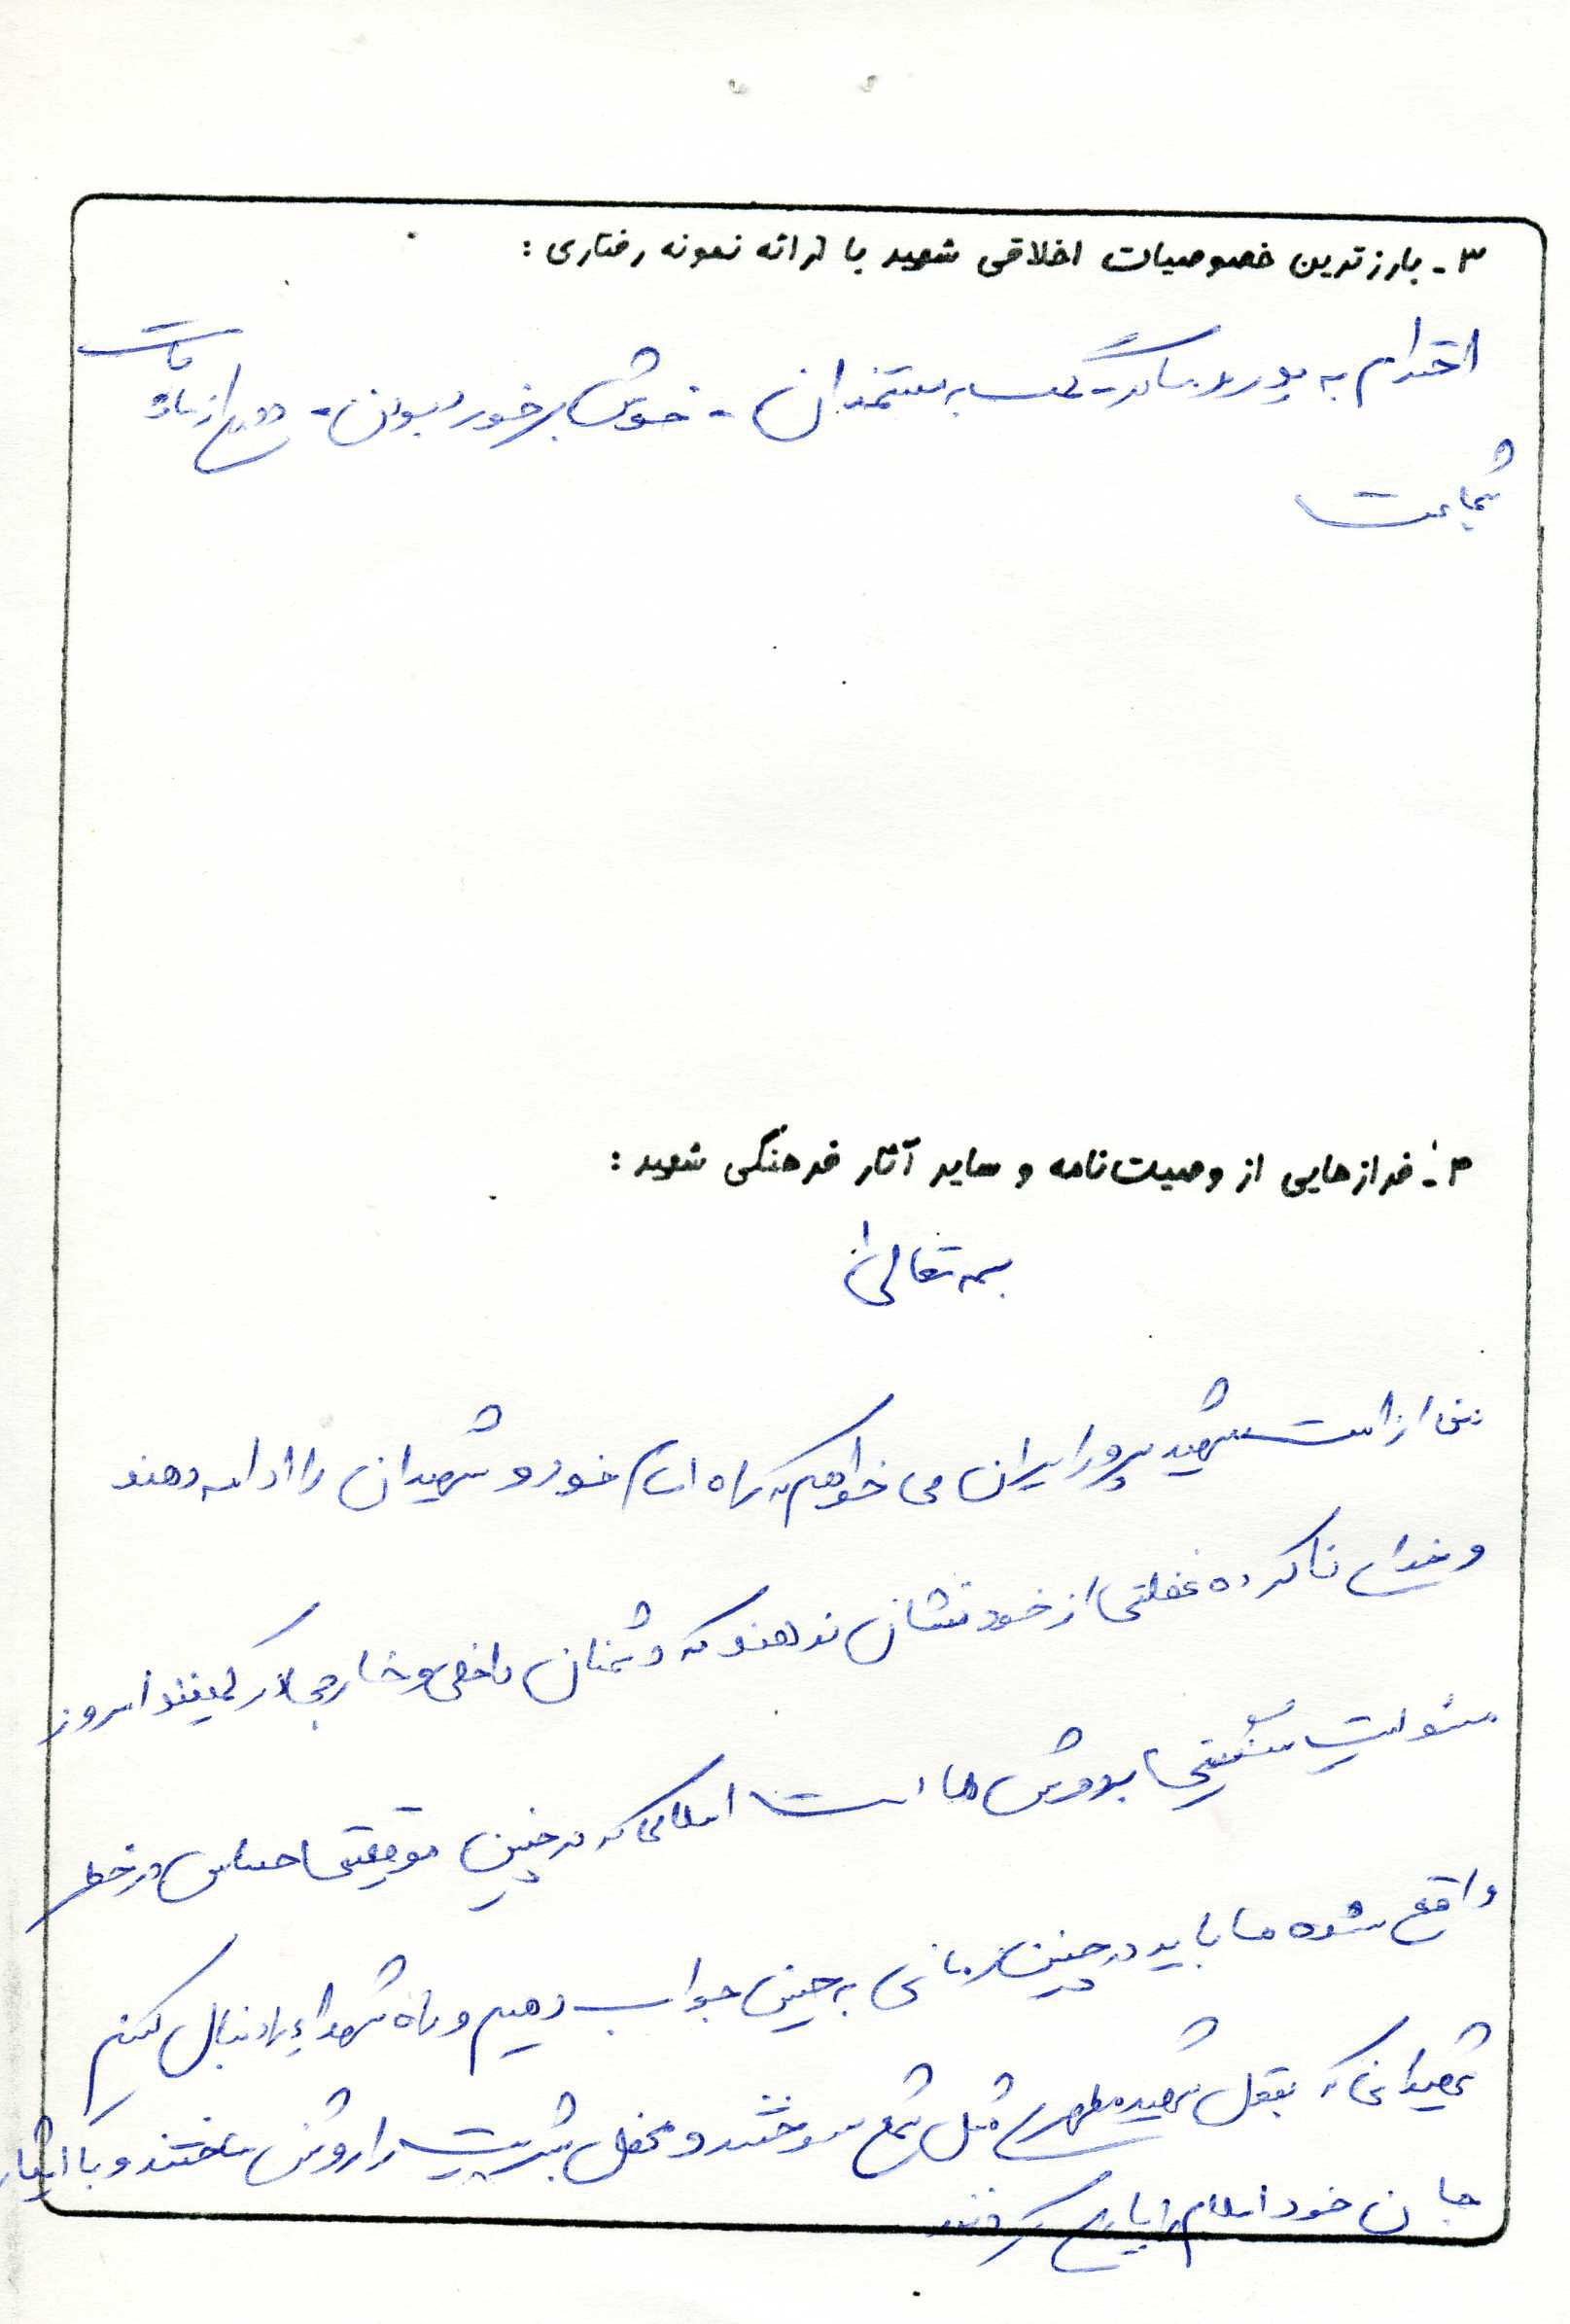 ۳- بارزترین خصوصیات اخلاقی شهید با ارائه نمونه رفتاری :
احترام به پدر و مادر - کمک به مستمندان - خوش برخورد بودن - دفاع از
شجاعت
۴- فرازهایی از وصیت‌نامه و سایر آثار فرهنگی شهید :
بسمه تعالی
من از امت شهید پرور ایران می خواهم که راه امام خود و شهیدان را ادامه دهند
و خدای ناکرده غفلتی از خود نشان ندهند که دشمنان داخلی و خارجی در کمینند امروز
مسئولیت سنگینی بر دوش ما است اسلامی که در چنین موقعیتی حساس در خطر
واقع شده ما باید در چنین زمانی به حسین جواب دهیم و راه شهداء را دنبال کنیم
شهیدانی که بقول شهید مطهری مثل شمع سوختند و محفل بشریت را روشن ساختند و با ایثار
جان خود اسلام را یاری کردند